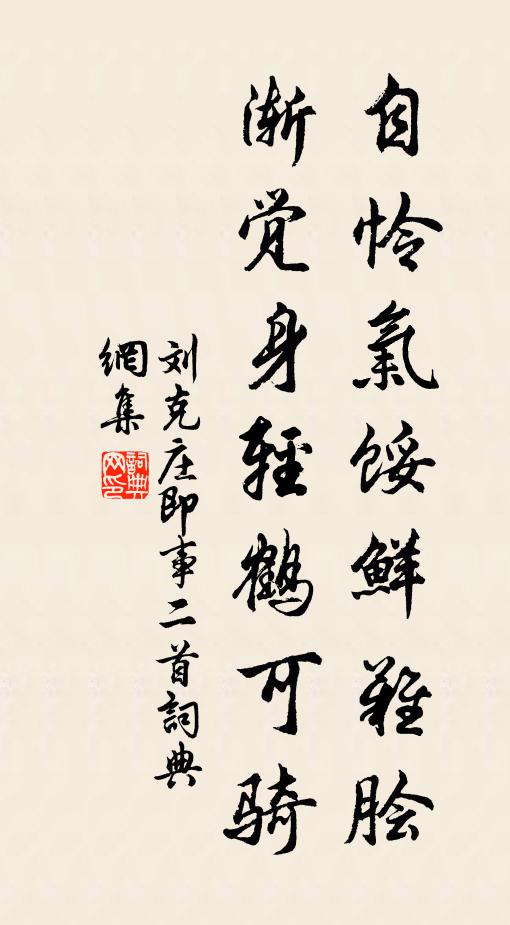 自怜氣餒鮮難脍
渐觉身輕鶴可骑
刘克庄即事二首詞典
網集
詞典网印